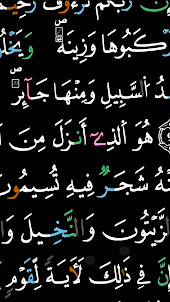 إِنَّ رَبَّكُمْ لَرَءُوفٌ رَّحِيمٌ
رْكَبُوهَا وَزِينَةً ۖ وَيَخْلُ
دُ اُ۬لسَّبِيلِ وَمِنْهَا جَآئِرٌ ۖ
هُوَ اَ۬لذِےٓ أَنزَلَ مِنَ
هُ شَجَرٌ فِيهِ تُسِيمُونَ
لزَّيْتُونَ وَالنَّخِيلَ وَا
إِنَّ فِي ذَٰلِكَ لَأٓيَةً لِّقَوْمٍ